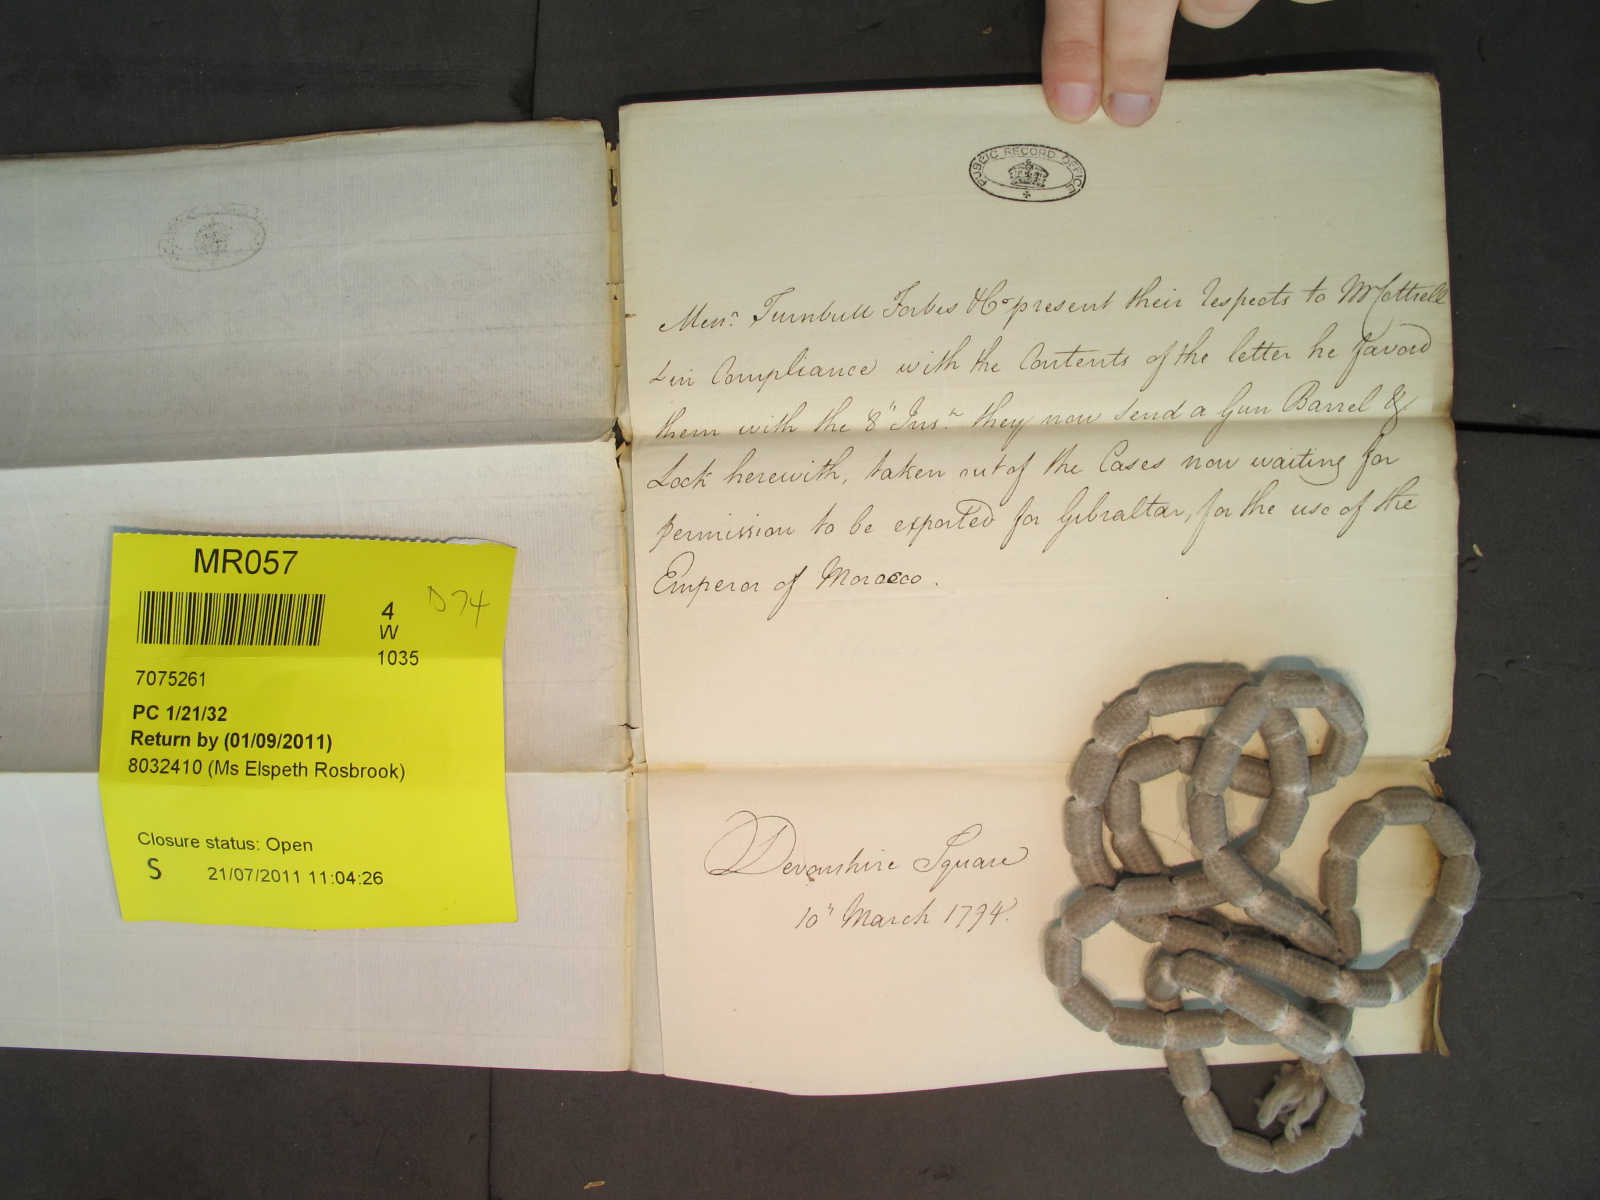 PUBLIC RECORD OFFICE
Messrs. Turnbull Forbes & Co present their respects to Mr Cottrell
& in Compliance with the Contents of the letter he favord
them with the 8" Inst. they now send a Gun Barrel &
Lock herewith, taken out of the Cases now waiting for
permission to be exported for Gibraltar, for the use of the
Emperor of Morocco.
Devonshire Square
10" March 1794.
MR057
D74
4
W
1035
7075261
PC 1/21/32
Return by (01/09/2011)
8032410 (Ms Elspeth Rosbrook)
Closure status: Open
S 21/07/2011 11:04:26